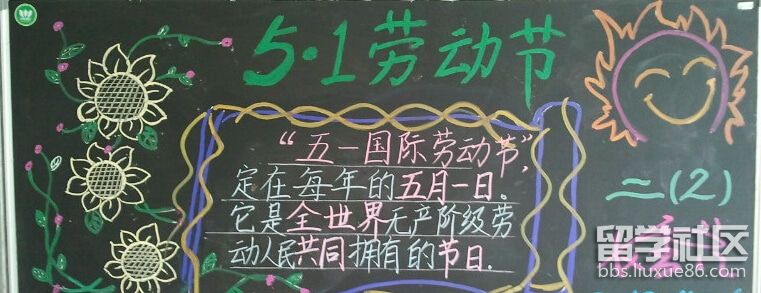 5·1劳动节
“五一国际劳动节”，
定在每年的五月一日。
它是全世界无产阶级劳
动人民共同拥有的节日.
二(2)
留学社区
bbs.liuxue86.com